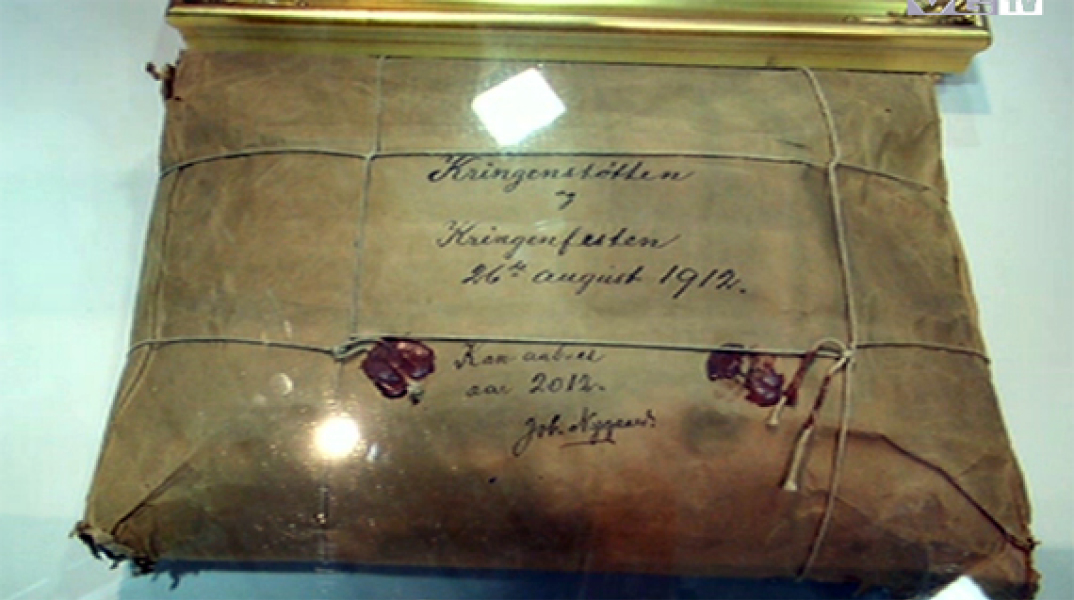 Kringenstötten
og
Kringenfesten
26de august 1912.
Kan aabnes
aar 2012.
Joh. Nygaard.
TV